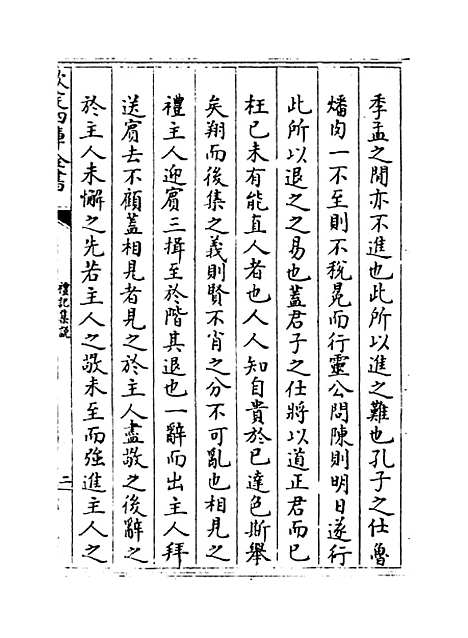 季孟之間亦不進也此所以進之難也孔子之仕魯
燔肉一不至則不稅冕而行靈公問陳則明日遂行
此所以退之之易也蓋君子之仕將以道正君而已
枉已未有能直人者也人人知自貴於已達色斯舉
矣翔而後集之義則賢不肖之分不可亂也相見之
禮主人迎賓三揖至於階其退也一辭而出主人拜
送賓去不顧蓋相見者見之於主人盡敬之後辭之
於主人未懈之先若主人之敬未至而強進主人之
欽定四庫全書
禮記集說
二